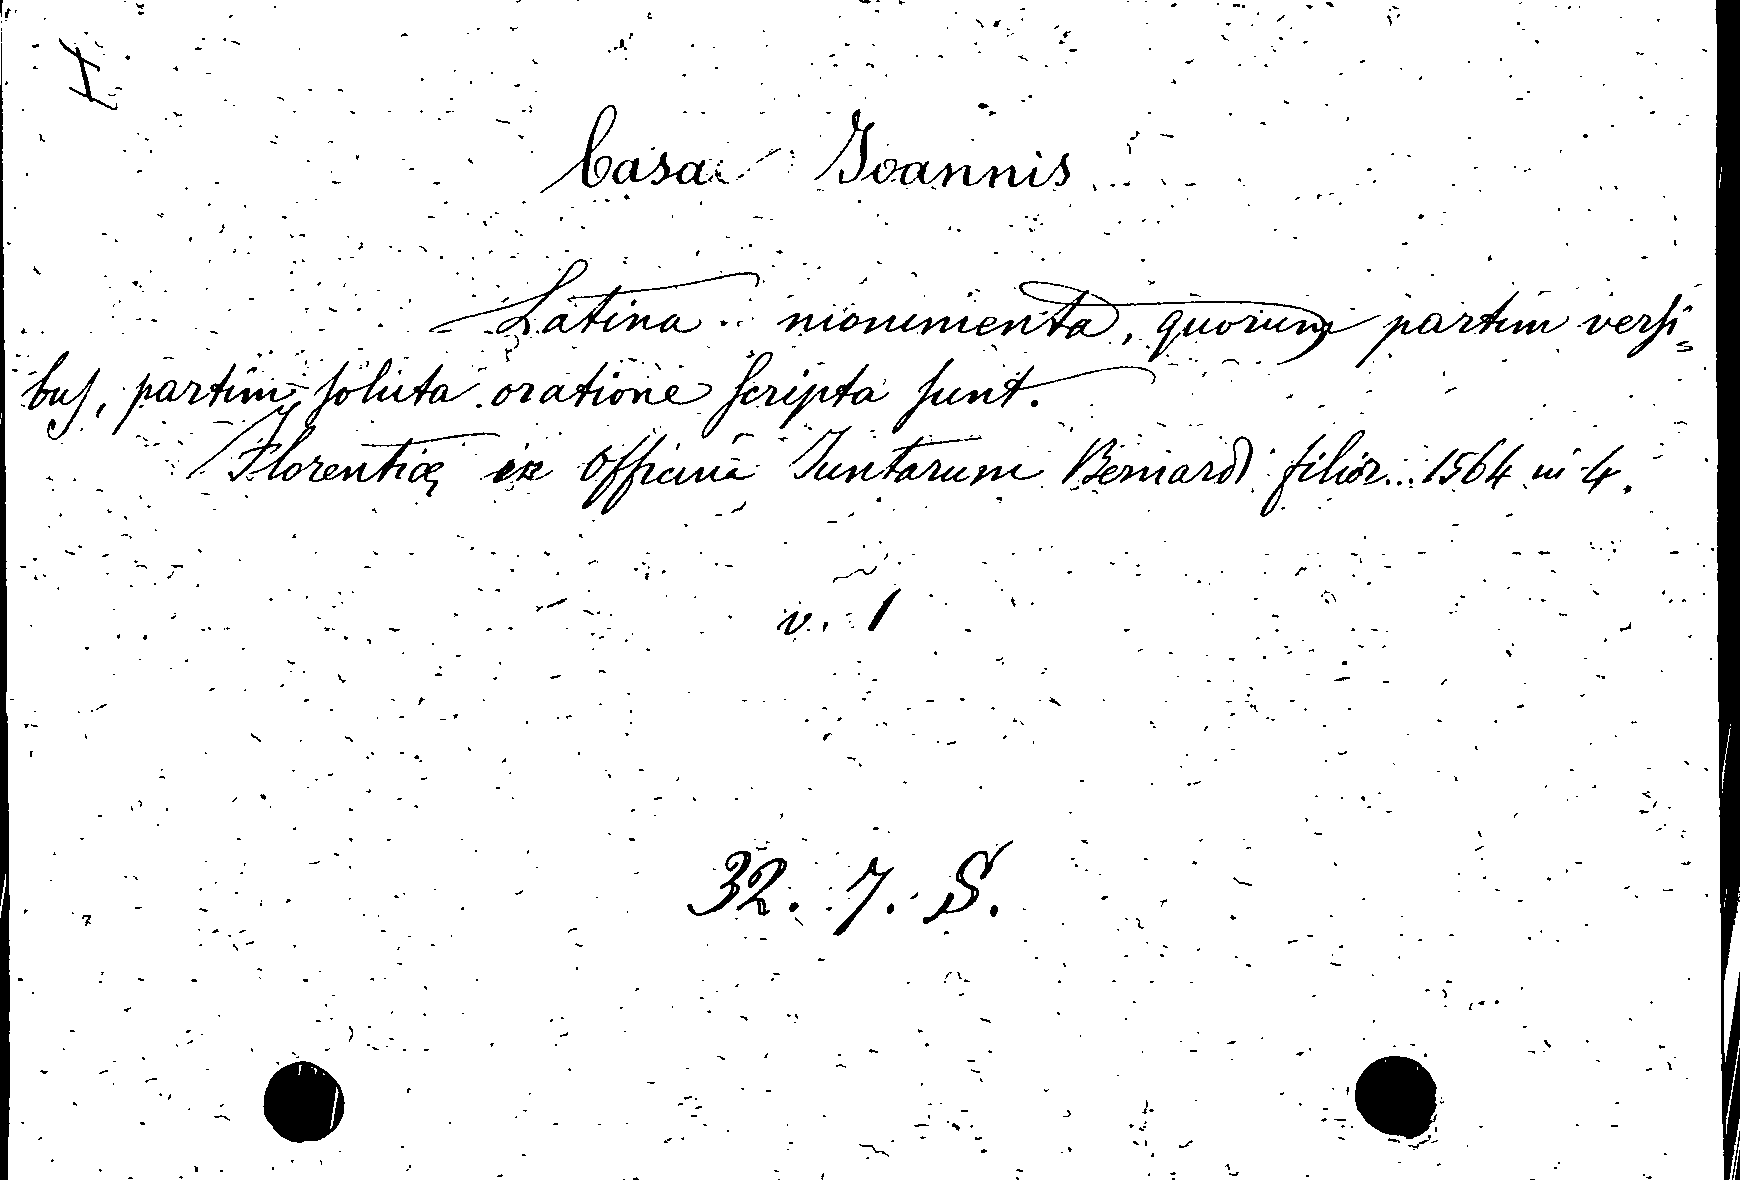 I
Casae Joannis
Latina monimenta, quorum partim versi=
bus, partim soluta oratione scripta sunt.
Florentiæ, ex Officina Juntarum Bernardi filior. 1564 in 4.
v. 1
32. 7. S.